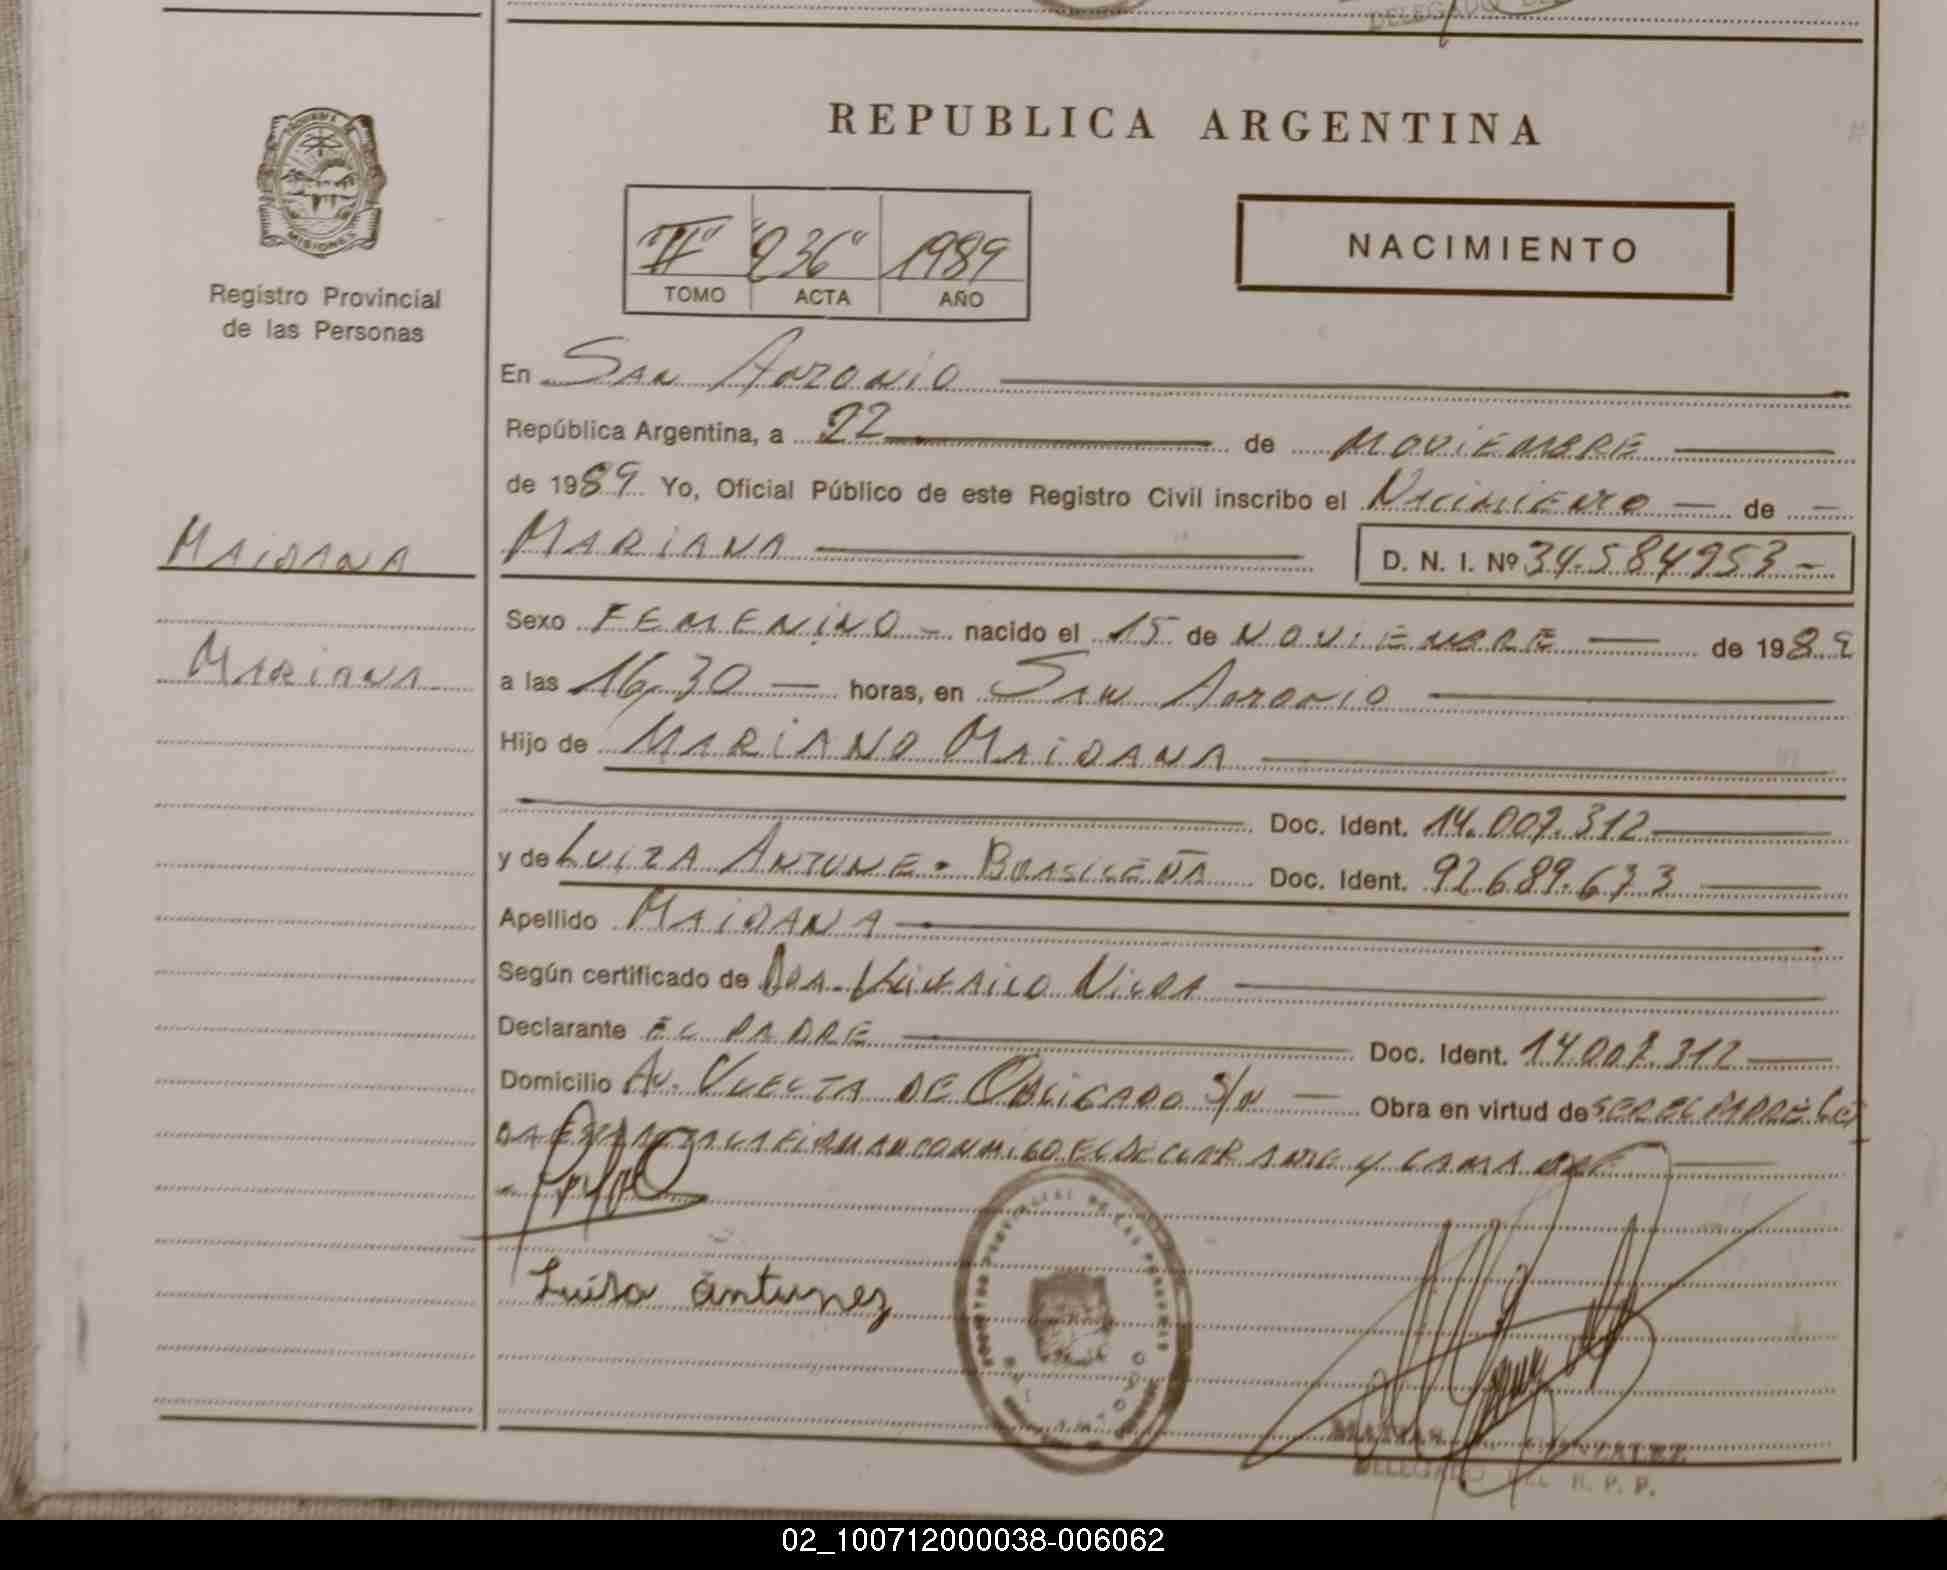 REPUBLICA ARGENTINA
MISIONES
Registro Provincial
de las Personas
"II" "236" 1989
TOMO ACTA AÑO
NACIMIENTO
En San Antonio
República Argentina, a 22 de NOVIEMBRE
de 1989 Yo, Oficial Público de este Registro Civil inscribo el Nacimiento de
MAIDANA
MARIANA
D. N. I. Nº 34.584953-
MARIANA
Sexo FEMENINO nacido el 15 de NOVIEMBRE de 1989
a las 16,30 horas, en San Antonio
Hijo de MARIANO MAIDANA
Doc. Ident. 14.007.312
y de LUIZA ANTUNE - BRASILEÑA Doc. Ident. 92689.633
Apellido MAIDANA
Según certificado de Dra.
Declarante EL PADRE Doc. Ident. 14.007.312
Domicilio Av. VUELTA DE OBLIGADO S/N Obra en virtud de SER EL PADRE LEI
DA ESTA ACTA LA FIRMAN CONMIGO EL DECLARANTE Y LA MADRE
Luisa antunez
REGISTRO PROVINCIAL DE LAS PERSONAS
MATIAS GONZALEZ
DELEGADO DEL R. P. P.
02_100712000038-006062